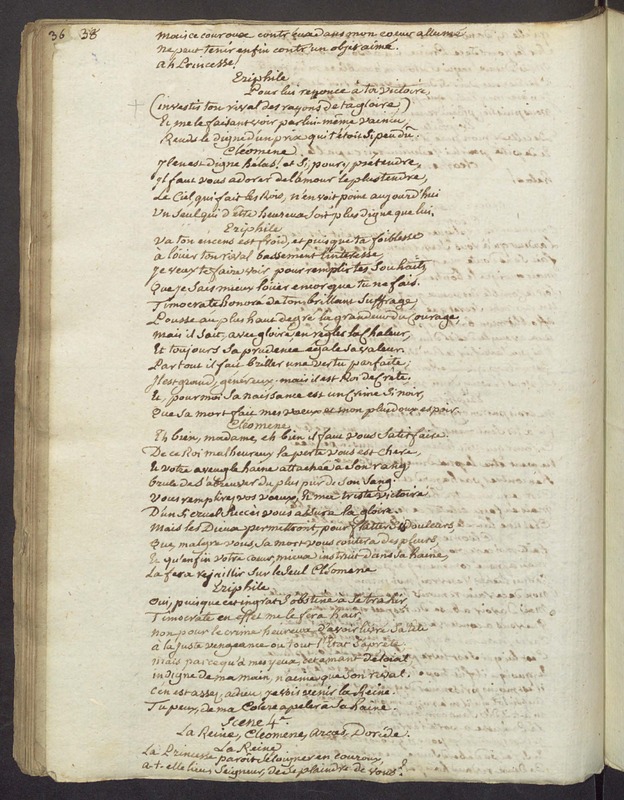 36 38
mais ce couroux contr'eux dans mon coeur allumé
ne peut tenir enfin contr'un objet aimé.
ah Princesse!
Eriphile
Pour lui renonce a ta victoire,
(investis ton rival des rayons de ta gloire,)
Et me le faisant voir par lui-même vaincu,
Rends le digne d'un prix qui t'étoit si peu dû.
Cléomene
Il en est digne hélas! et si, pour y prétendre,
il faut vous adorer de l'amour le plus tendre,
Le Ciel qui fait les Rois, n'en voit point aujourd'hui
Un seul qui d'être heureux soit plus digne que lui.
Eriphile
Va ton encens est froid, et puisque ta foiblesse
a loüer ton rival bassement t'interesse,
je veux te faire voir pour remplir tes souhaits
Que je sais mieux loüer encor que tu ne fais.
Timocrate honoré de ton brillant suffrage,
Pousse au plus haut degré la grandeur du Courage,
mais il sait, avec gloire, en regler la chaleur,
Et toujours sa prudence égale sa valeur.
Partout il fait briller une vertu parfaite;
Il est grand, généreux, mais il est Roi de Crète.
Et, pour moi sa naissance est un Crime si noir,
Que sa mort fait mes voeux et mon plus doux espoir.
Cléomene
Eh bien, madame, eh bien il faut vous satisfaire.
De ce Roi malheureux la perte vous est chere,
Et votre aveugle haine attachée a son rang
brule de s'abreuver du plus pur de son sang.
Vous remplirez vos voeux, Et ma triste victoire
D'un si cruel succès vous assura la gloire.
Mais les Dieux permettront, pour flatter douleurs,
Que, malgré vous, sa mort vous coûtera des pleurs,
Et qu'enfin votre coeur, mieux instruit dans sa haine,
La fera rejaillir sur le seul Cléomene
Eriphile
Oui, puisque cet ingrat s'obstine a se trahir
Timocrate en effet me le fera haïr,
non pour le crime heureux d'avoir livré sa tête
a la juste vengeance ou tout l'Etat s'aprête
mais parce qu'a mes yeux, cet amant déloial
indigne de ma main, n'aime que son rival.
C'en est assez, adieu, je vois venir la Reine.
Tu peux, de ma Colere apeler a sa haine.
Scene 4e.
La Reine, Cléomene, Arcas, Doride.
La Reine
La Princesse paroît s'éloigner en couroux,
a-t-elle lieu, Seigneur, de se plaindre de vous?